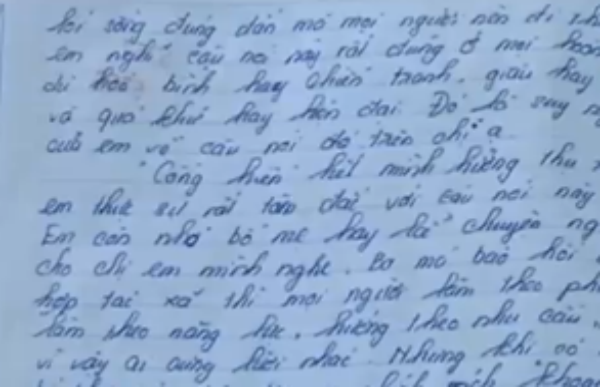 lối sống đúng đắn mà mọi người nên đi th
em nghĩ câu nói này rất đúng ở mọi hoàn
dù hoà bình hay chiến tranh, giàu hay
và quá khứ hay hiện đại. Đó là suy ng
của em về câu nói đó trên chị ạ
"Cống hiến hết mình hưởng thụ
em thực sự rất tâm đắc với câu nói này
Em còn nhớ bố mẹ hay kể chuyện ng
cho chị em mình nghe. Ba mẹ bảo hồi
hợp tác xã thì mọi người làm theo ph
làm theo năng lực, hưởng theo nhu cầu.
vì vậy ai cũng lười nhác. Nhưng khi có